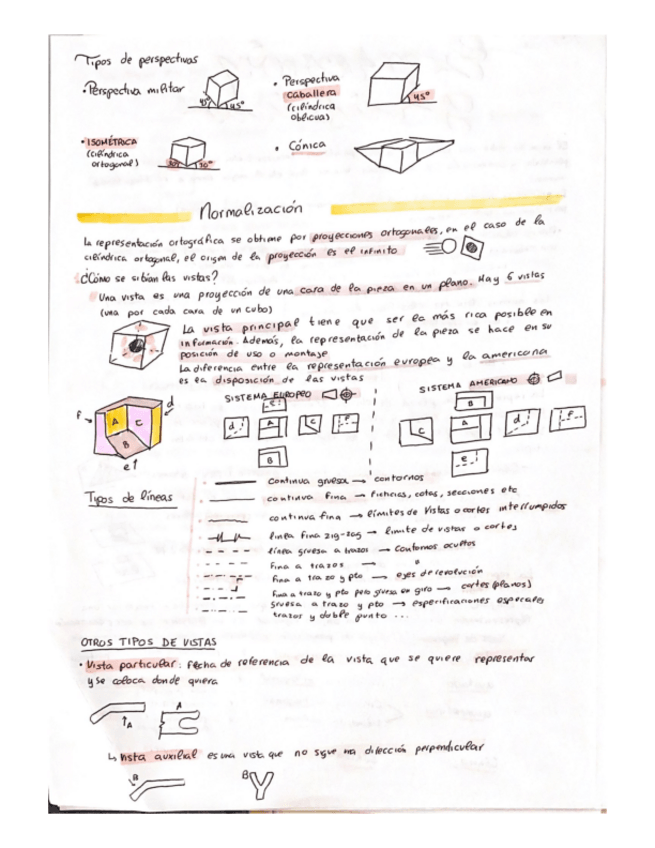 Tipos de perspectivas
• Perspectiva militar
45° 45°
• Perspectiva
caballera
(cilíndrica
oblicua)
45°
• ISOMÉTRICA
(cilíndrica
ortogonal)
30° 30°
• Cónica
Normalización
La representación ortográfica se obtiene por proyecciones ortogonales, en el caso de la
cilíndrica ortogonal, el origen de la proyección es el infinito
¿Cómo se sitúan las vistas?
Una vista es una proyección de una cara de la pieza en un plano. Hay 6 vistas
(una por cada cara de un cubo)
La vista principal tiene que ser la más rica posible en
información. Además, la representación de la pieza se hace en su
posición de uso o montaje
La diferencia entre la representación europea y la americana
es la disposición de las vistas
SISTEMA EUROPEO
SISTEMA AMERICANO
f A C B d e
e
d A C f
B
B
C A d f
e
Tipos de líneas
continua gruesa → contornos
continua fina → ficticias, cotas, secciones etc
continua fina → límites de vistas o cortes interrumpidos
línea fina zig-zag → límite de vistas o cortes
línea gruesa a trazos → contornos ocultos
fina a trazos → "
fina a trazo y pto → ejes de revolución
fina a trazo y pto pero gruesa en giro → cortes (planos)
gruesa a trazo y pto → especificaciones especiales
trazos y doble punto ...
OTROS TIPOS DE VISTAS
• Vista particular: flecha de referencia de la vista que se quiere representar
y se coloca donde quiera
A
A
↳ Vista auxilial es una vista que no sigue una dirección perpendicular
B
B